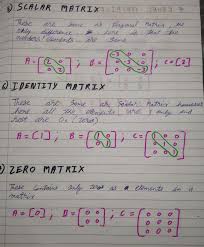 SCALAR MATRIX
These are same as Diagonal Matrix, the
only difference here is that the
elements are same
A = [2 0 0 2] ; B = [ ] ; C = [2]
IDENTITY MATRIX
These are same as Scalar Matrix however
here all the elements are 1 only and
rest are 0s (zero)
A = [1] , B = [1 0 0 1] ; C = [1 0 0 0 1 0 0 0 1]
ZERO MATRIX
These contains only zero as a elements in a
matrix
A = [0] , B = [0 0 0 0] ; C = [0 0 0 0 0 0 0 0 0]